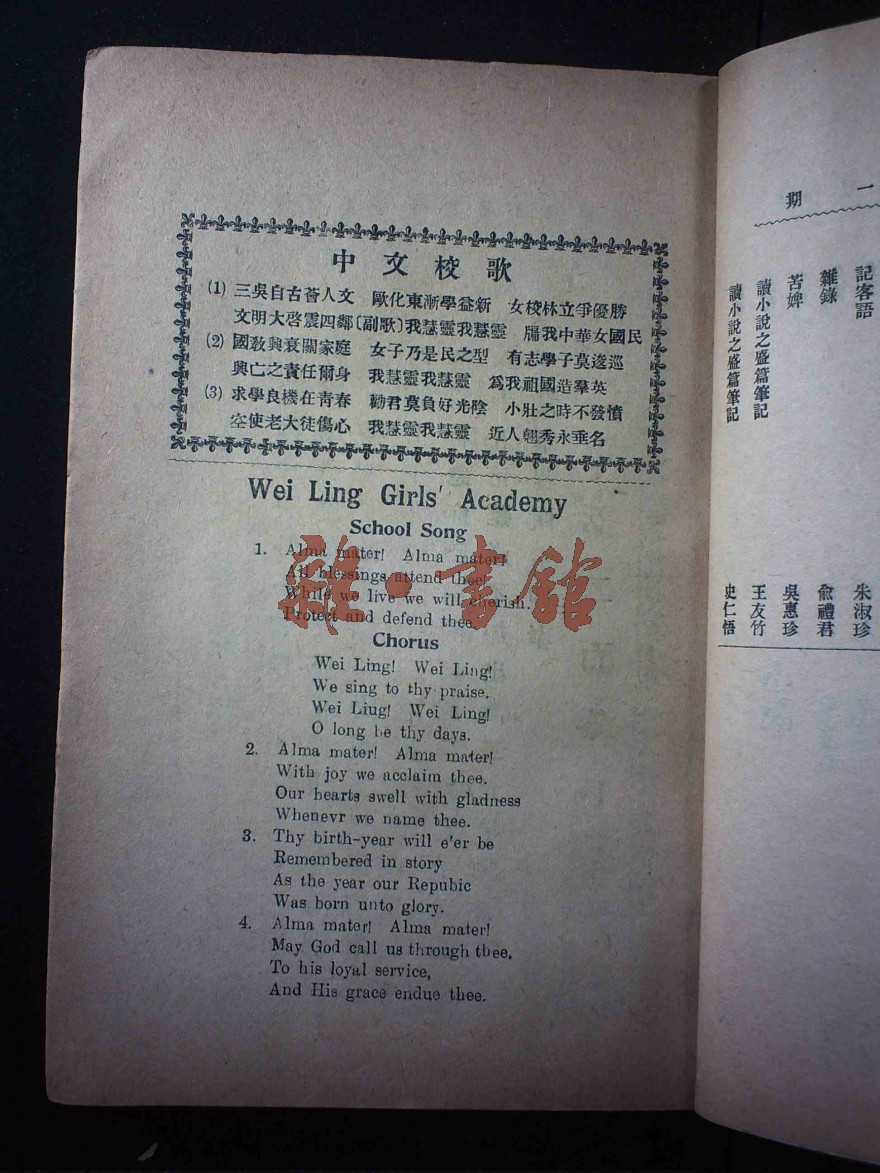 中文校歌
(1) 三吳自古薈人文　歐化東漸學益新　女校林立爭優勝
文明大啓震四鄰〔副歌〕我慧靈我慧靈　牖我中華女國民
(2) 國教興衰關家庭　女子乃是民之型　有志學子莫逡巡
興亡之責任爾身　我慧靈我慧靈　爲我祖國造羣英
(3) 求學良機在青春　勸君莫負好光陰　小壯之時不發憤
空使老大徒傷心　我慧靈我慧靈　近人翹秀永垂名
Wei Ling Girls' Academy
School Song
1. Alma mater! Alma mater!
All blessings attend thee!
While we live we will cherish.
Protect and defend thee.
Chorus
Wei Ling! Wei Ling!
We sing to thy praise.
Wei Liug! Wei Ling!
O long be thy days.
2. Alma mater! Alma mater!
With joy we acclaim thee.
Our hearts swell with gladness
Whenevr we name thee.
3. Thy birth-year will e'er be
Remembered in story
As the year our Repubic
Was born unto glory.
4. Alma mater! Alma mater!
May God call us through thee.
To his loyal service,
And His grace endue thee.
雜·書館
一期
記客語　朱淑珍
雜錄　俞禮君
苦婢　吳惠珍
讀小說之盛篇筆記　王友竹
讀小說之盛篇筆記　史仁悟